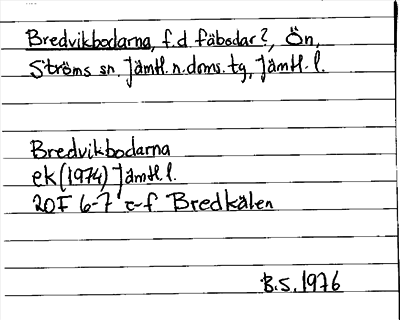 Bredvikbodarna, f.d. fäbodar?, Ön,
Ströms sn, Jämtl. n. doms. tg, Jämtl. l.
Bredvikbodarna
ek (1974) Jämtl. l.
20F 6-7 e-f Bredkälen
B.S. 1976